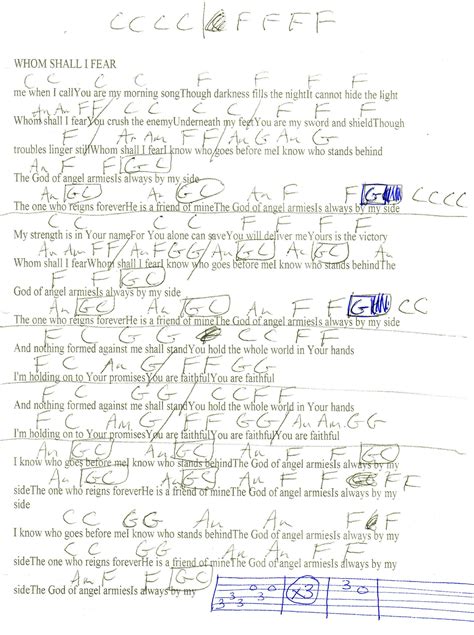 C C C C | F F F F
WHOM SHALL I FEAR
C C C C F F F F
me when I callYou are my morning songThough darkness fills the nightIt cannot hide the light
Am Am F F / C C C C / F F F
Whom shall I fearYou crush the enemyUnderneath my feetYou are my sword and shieldThough
F Am Am F F / Am G Am G
troubles linger stillWhom shall I fearI know who goes before meI know who stands behind
Am F F G C
The God of angel armiesIs always by my side
Am G C Am G C Am F F G C C C C
The one who reigns foreverHe is a friend of mineThe God of angel armiesIs always by my side
C C C C F F F F
My strength is in Your nameFor You alone can saveYou will deliver meYours is the victory
Am Am F F / Am F G G / Am G C Am G C Am
Whom shall I fearWhom shall I fearI know who goes before meI know who stands behindThe
F F G C
God of angel armiesIs always by my side
Am G C Am G C Am F F G C C
The one who reigns foreverHe is a friend of mineThe God of angel armiesIs always by my side
F C G G C C F F
And nothing formed against me shall standYou hold the whole world in Your hands
F C Am G / F F G G
I'm holding on to Your promisesYou are faithfulYou are faithful
F C G G / C C F F
And nothing formed against me shall standYou hold the whole world in Your hands
F C Am G / F F G G / Am Am G G
I'm holding on to Your promisesYou are faithfulYou are faithfulYou are faithful
Am G C Am G C Am F F G C
I know who goes before meI know who stands behindThe God of angel armiesIs always by my
Am G C Am G C Am F F F F
sideThe one who reigns foreverHe is a friend of mineThe God of angel armiesIs always by my
side
C C G G Am Am F F
I know who goes before meI know who stands behindThe God of angel armiesIs always by my
C C G G Am Am F F
sideThe one who reigns foreverHe is a friend of mineThe God of angel armiesIs always by my
Am F F G C
sideThe God of angel armiesIs always by my
3 3 3 0 3 0 x3 3 0